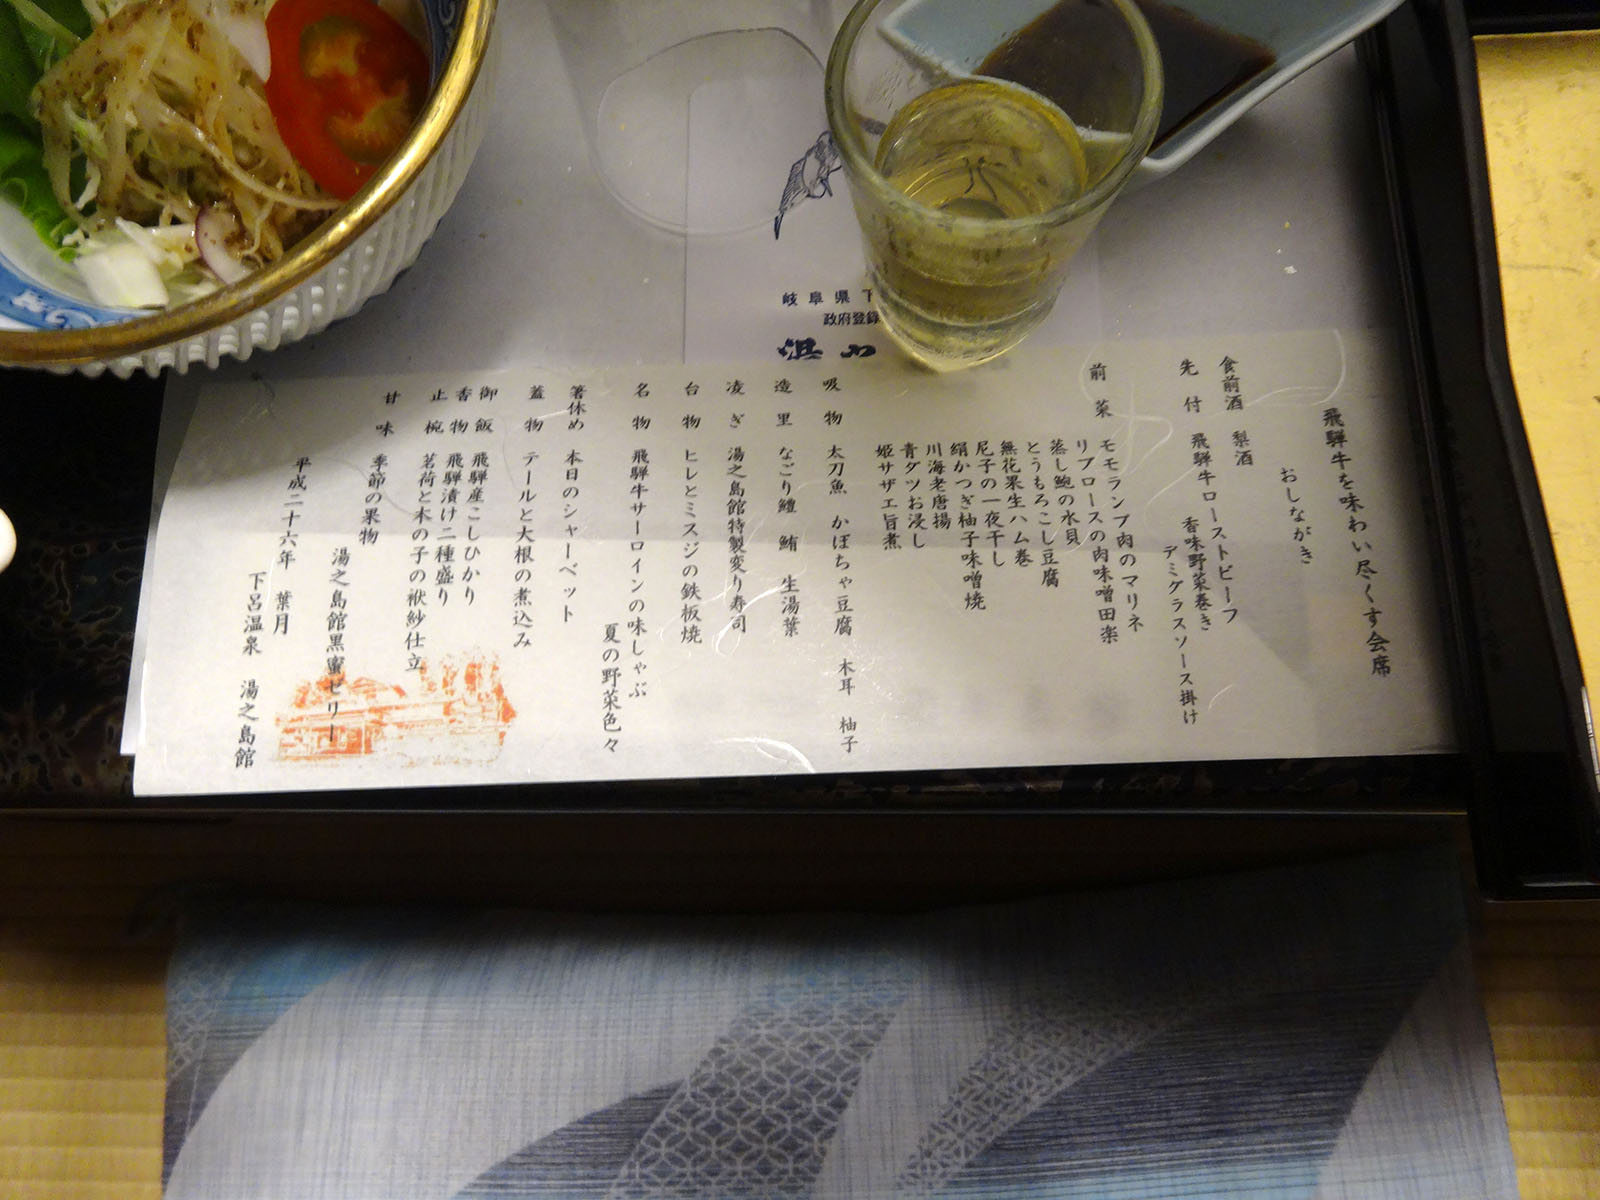 岐阜県下
政府登録
飛騨牛を味わい尽くす会席
おしながき
食前酒 梨酒
先付 飛騨牛ローストビーフ
香味野菜巻き
デミグラスソース掛け
前菜 モモランプ肉のマリネ
リブロースの肉味噌田楽
蒸し鮑の水貝
とうもろこし豆腐
無花果生ハム巻
尼子の一夜干し
絹かつぎ柚子味噌焼
川海老唐揚
青ダツお浸し
姫サザエ旨煮
吸物 太刀魚 かぼちゃ豆腐 木耳 柚子
造里 なごり鱧 鮪 生湯葉
凌ぎ 湯之島館特製変り寿司
台物 ヒレとミスジの鉄板焼
名物 飛騨牛サーロインの味しゃぶ
夏の野菜色々
箸休め 本日のシャーベット
蓋物 テールと大根の煮込み
御飯 飛騨産こしひかり
香物 飛騨漬け二種盛り
止椀 茗荷と木の子の袱紗仕立
甘味 季節の果物
湯之島館黒蜜ゼリー
平成二十六年 葉月
下呂温泉 湯之島館